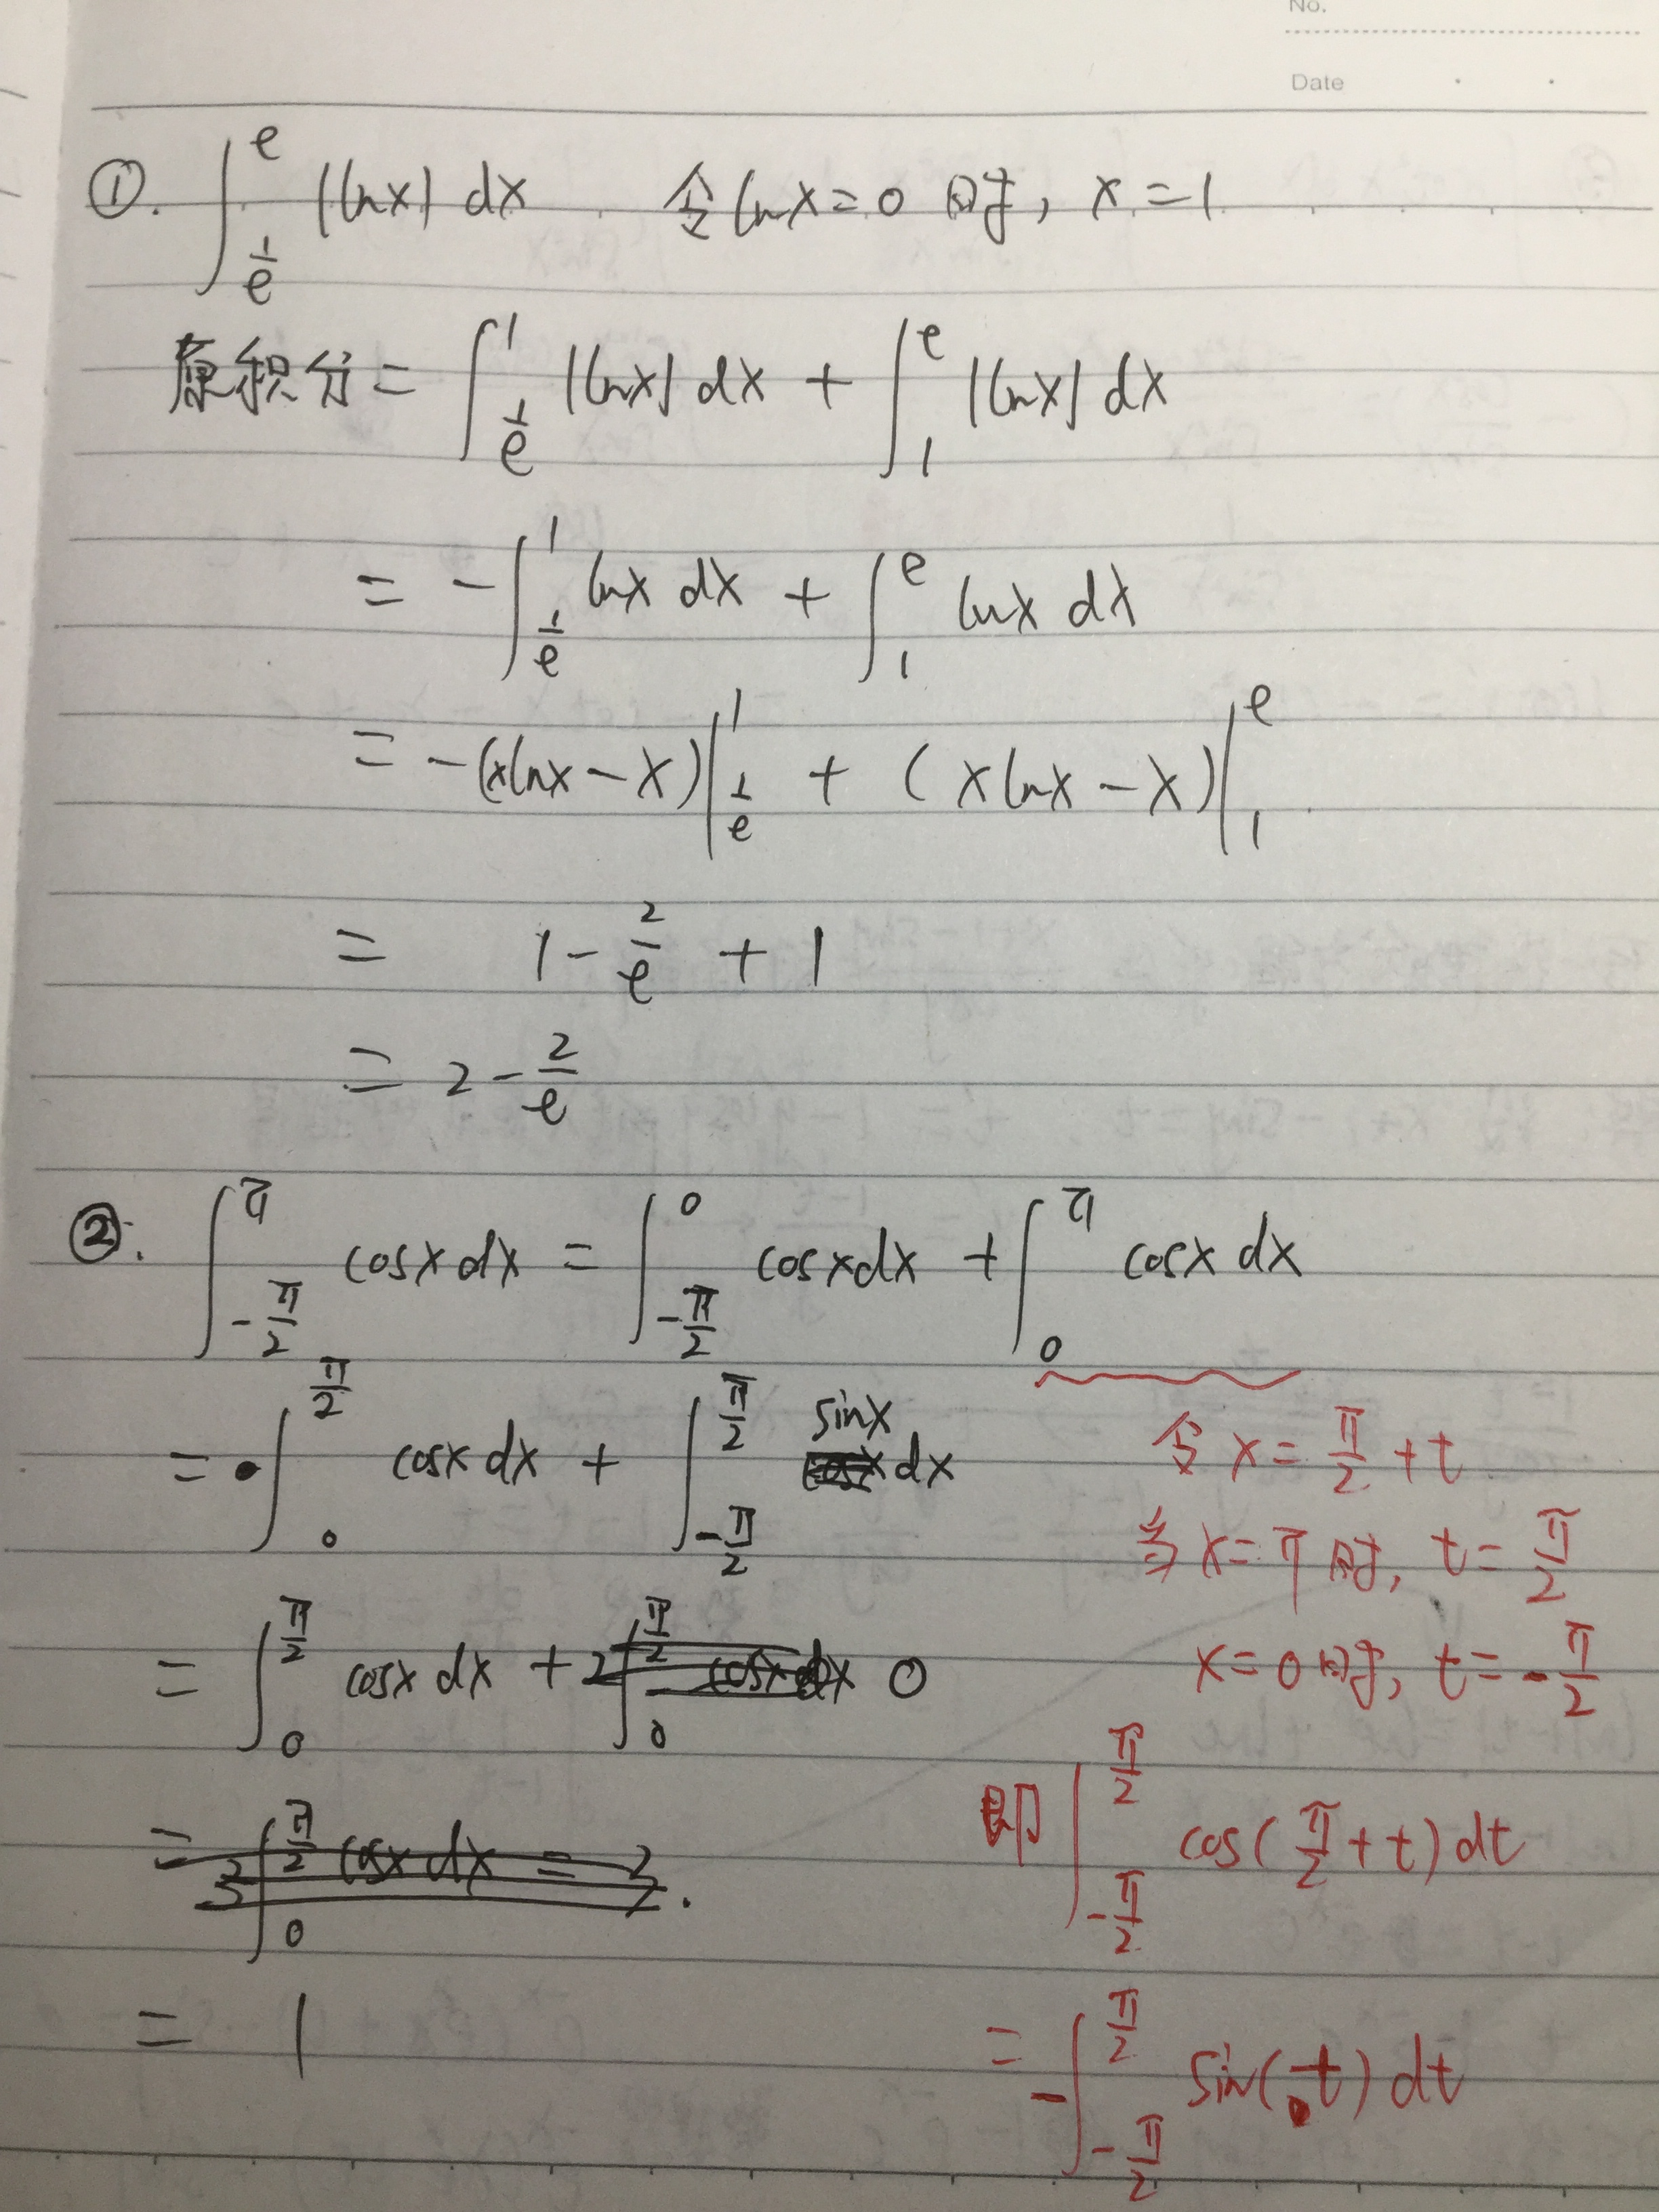 No.
Date
①. ∫_{1/e}^{e} |lnx| dx 令lnx=0 时, x=1
原积分 = ∫_{1/e}^{1} |lnx| dx + ∫_{1}^{e} |lnx| dx
= -∫_{1/e}^{1} lnx dx + ∫_{1}^{e} lnx dx
= -(xlnx-x)|_{1/e}^{1} + (xlnx-x)|_{1}^{e}
= 1 - 2/e + 1
= 2 - 2/e
②. ∫_{-π/2}^{π} cosx dx = ∫_{-π/2}^{0} cosx dx + ∫_{0}^{π} cosx dx
= ∫_{0}^{π/2} cosx dx + ∫_{-π/2}^{π/2} sinx dx
令 x = π/2 + t
当 x=π 时, t = π/2
= ∫_{0}^{π/2} cosx dx + 0
x=0时, t = -π/2
即 ∫_{-π/2}^{π/2} cos(π/2 + t) dt
= 1
= -∫_{-π/2}^{π/2} sin(t) dt